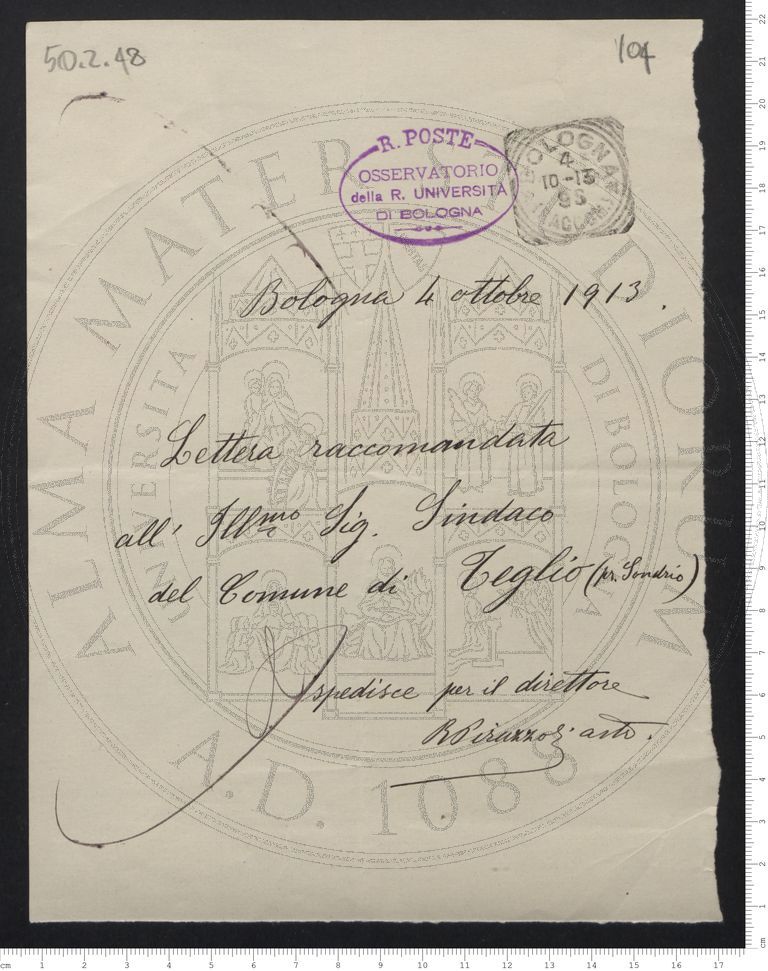 50.2.48
104
R. POSTE
OSSERVATORIO
della R. UNIVERSITÀ
DI BOLOGNA
BOLOGNA
4
10-13
Bologna 4 ottobre 1913.
Lettera raccomandata
all' Ill.mo Sig. Sindaco
del Comune di Teglio (pr. Sondrio)
Spedisce per il direttore
R Pirazzoli astr.
ALMA MATER STUDIORUM
UNIVERSITA DI BOLOGNA
A.D. 1088
cm 1 2 3 4 5 6 7 8 9 10 11 12 13 14 15 16 17
cm 1 2 3 4 5 6 7 8 9 10 11 12 13 14 15 16 17 18 19 20 21 22